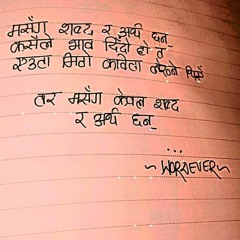 मसँग शब्द र अर्थ छन्
कसैले भाव दिँदो हो त
एउटा मिठो कविता लेख्ने थिएँ
तर मसँग केवल शब्द
र अर्थ छन्
...
~WORDEVER~